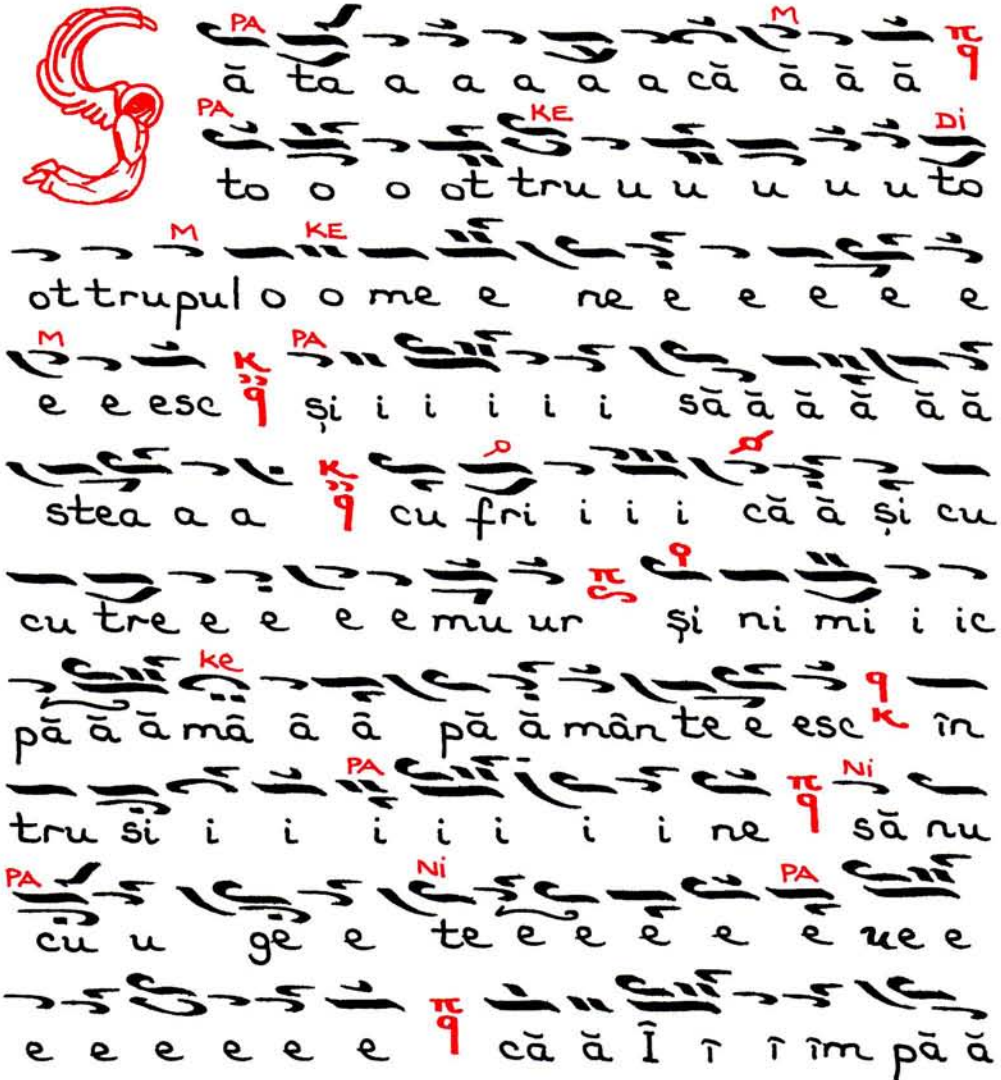 PA M π
S ă ta a a a a a că ă ă ă q
PA KE Di
to o o ot tru u u u u u to
M KE
ot trupul o o me e ne e e e e e
M K PA
e e esc q și i i i i i să ă ă ă ă ă
K
stea a a q cu fri i i i că ă și cu
π
cu tre e e e e mu ur și ni mi i ic
ke q
pă ă ă mâ â â pă ă mân te e esc K în
PA π Ni
tru si i i i i i i i ne q să nu
PA Ni PA
cu u ge e te e e e e e ue e
π
e e e e e e q că ă Î î î îm pă ă